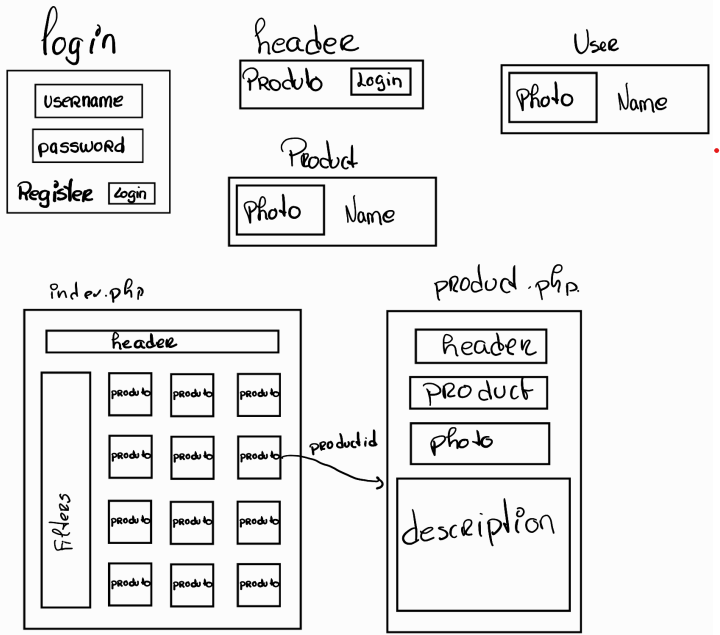 login
username
password
Register Login
header
Produto Login
User
Photo Name
Product
Photo Name
index.php
header
Filters
Produto Produto Produto
Produto Produto Produto
Produto Produto Produto
Produto Produto Produto
productid
product.php
header
product
photo
description